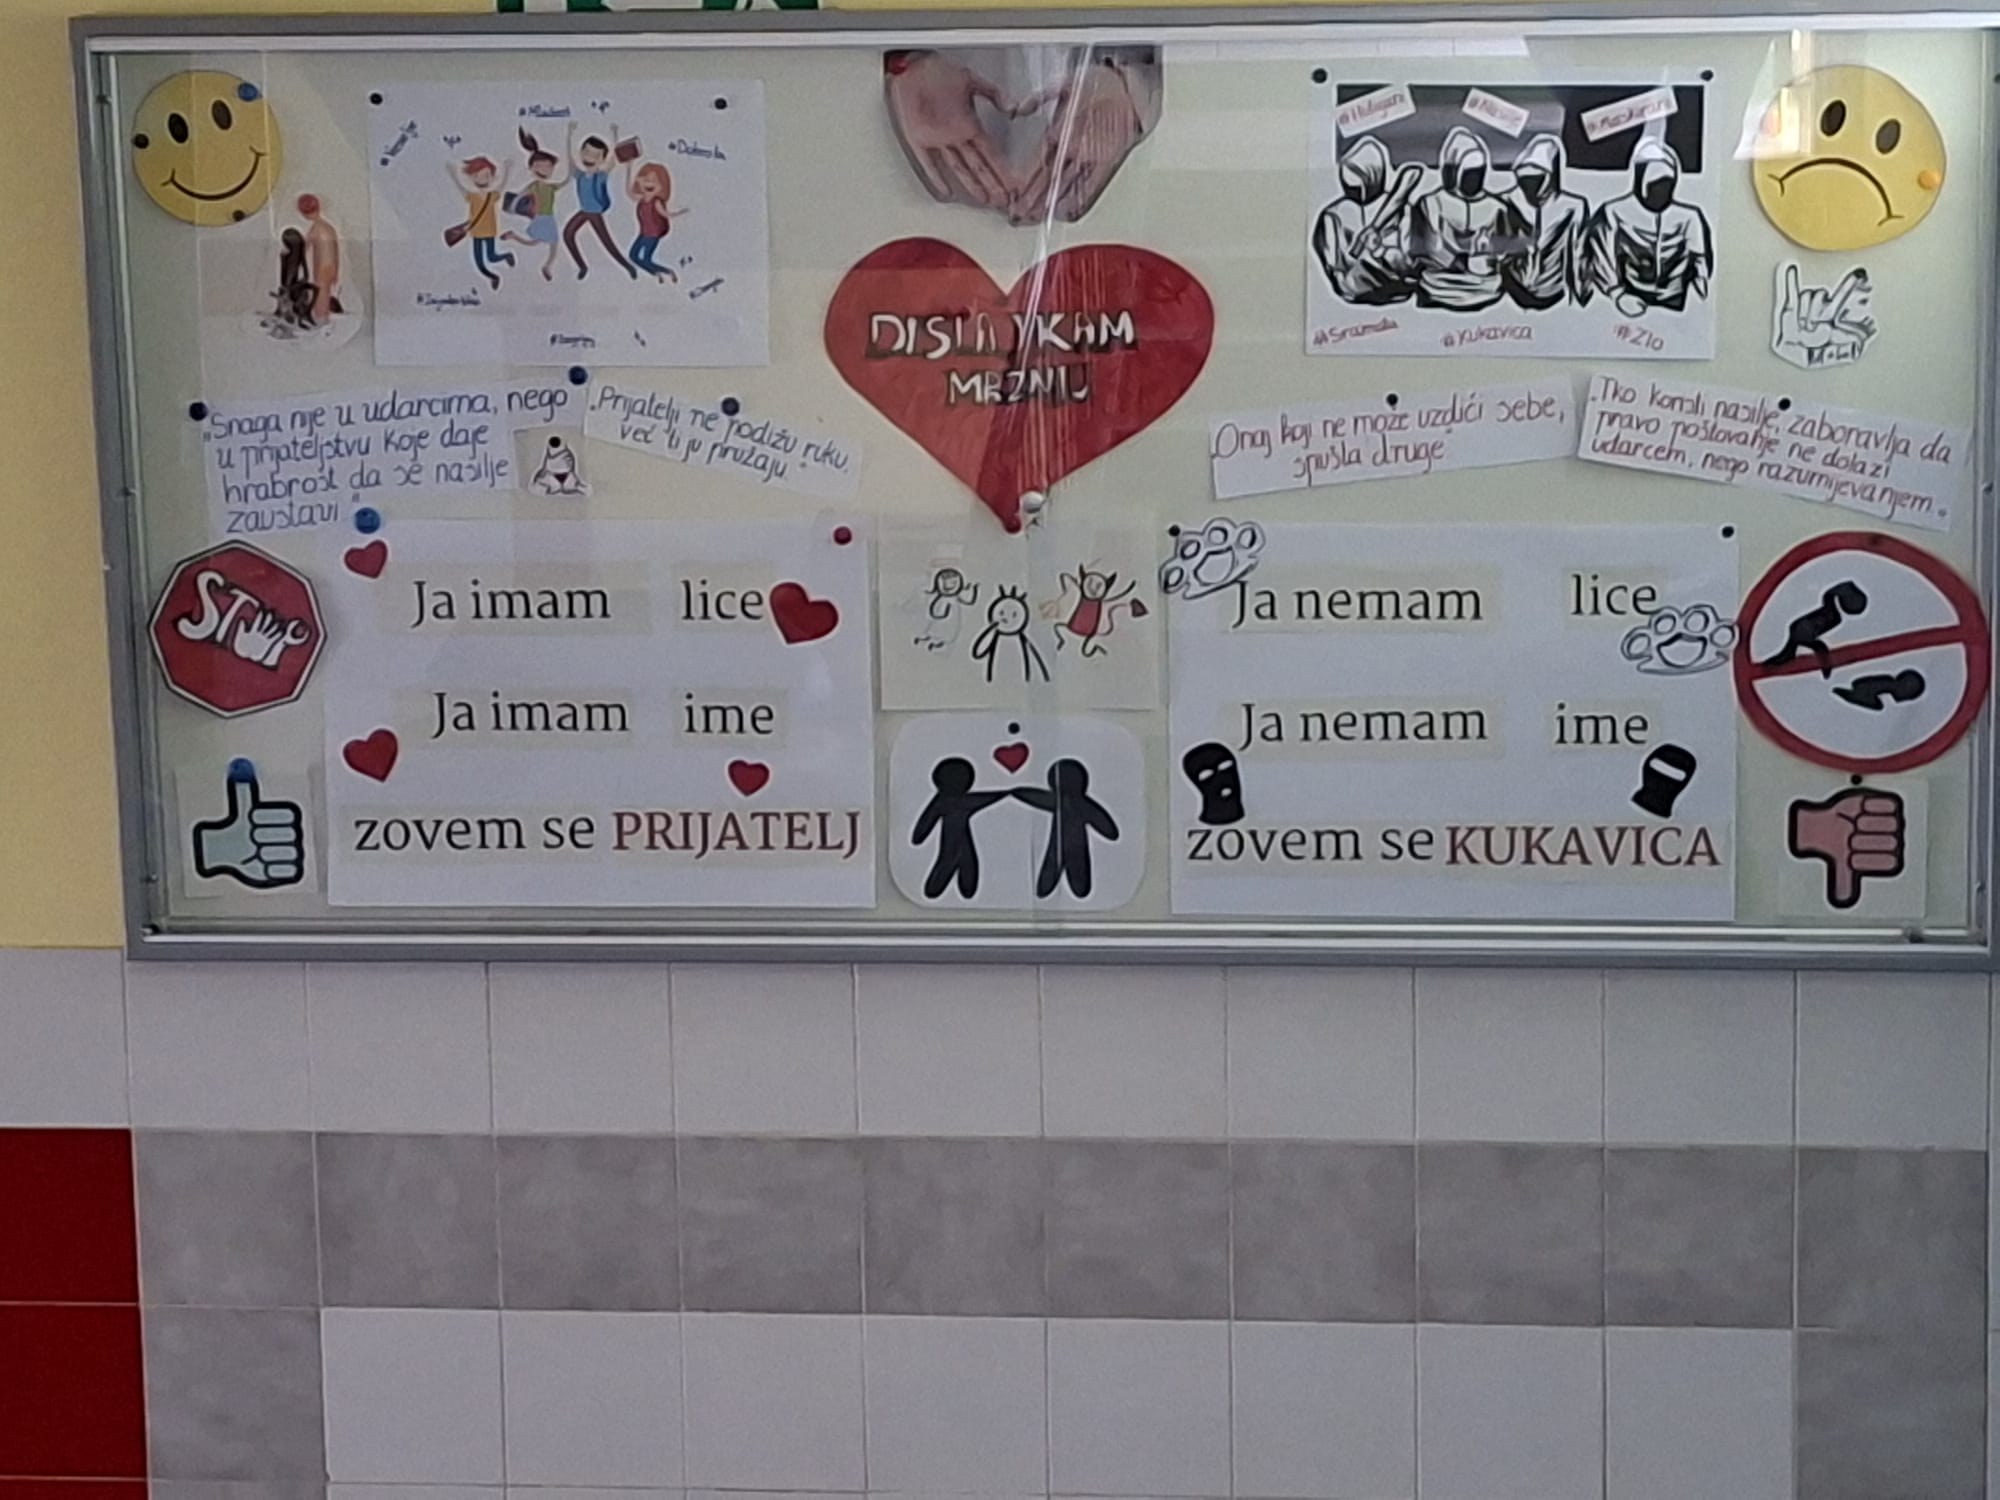 #Dobrota
#Huligani
#Nasilje
#Maskirani
#Sramota
#Kukavica
#Zlo
DISLAJKAM
MRŽNJU
"Snaga nije u udarcima, nego
u prijateljstvu koje daje
hrabrost da se nasilje
zaustavi"
"Prijatelji ne podižu ruku,
već ti ju pružaju."
"Onaj koji ne može uzdići sebe,
spušta druge"
"Tko koristi nasilje, zaboravlja da
pravo poštovanje ne dolazi
udarcem, nego razumijevanjem."
STOP
Ja imam lice
Ja imam ime
zovem se PRIJATELJ
Ja nemam lice
Ja nemam ime
zovem se KUKAVICA